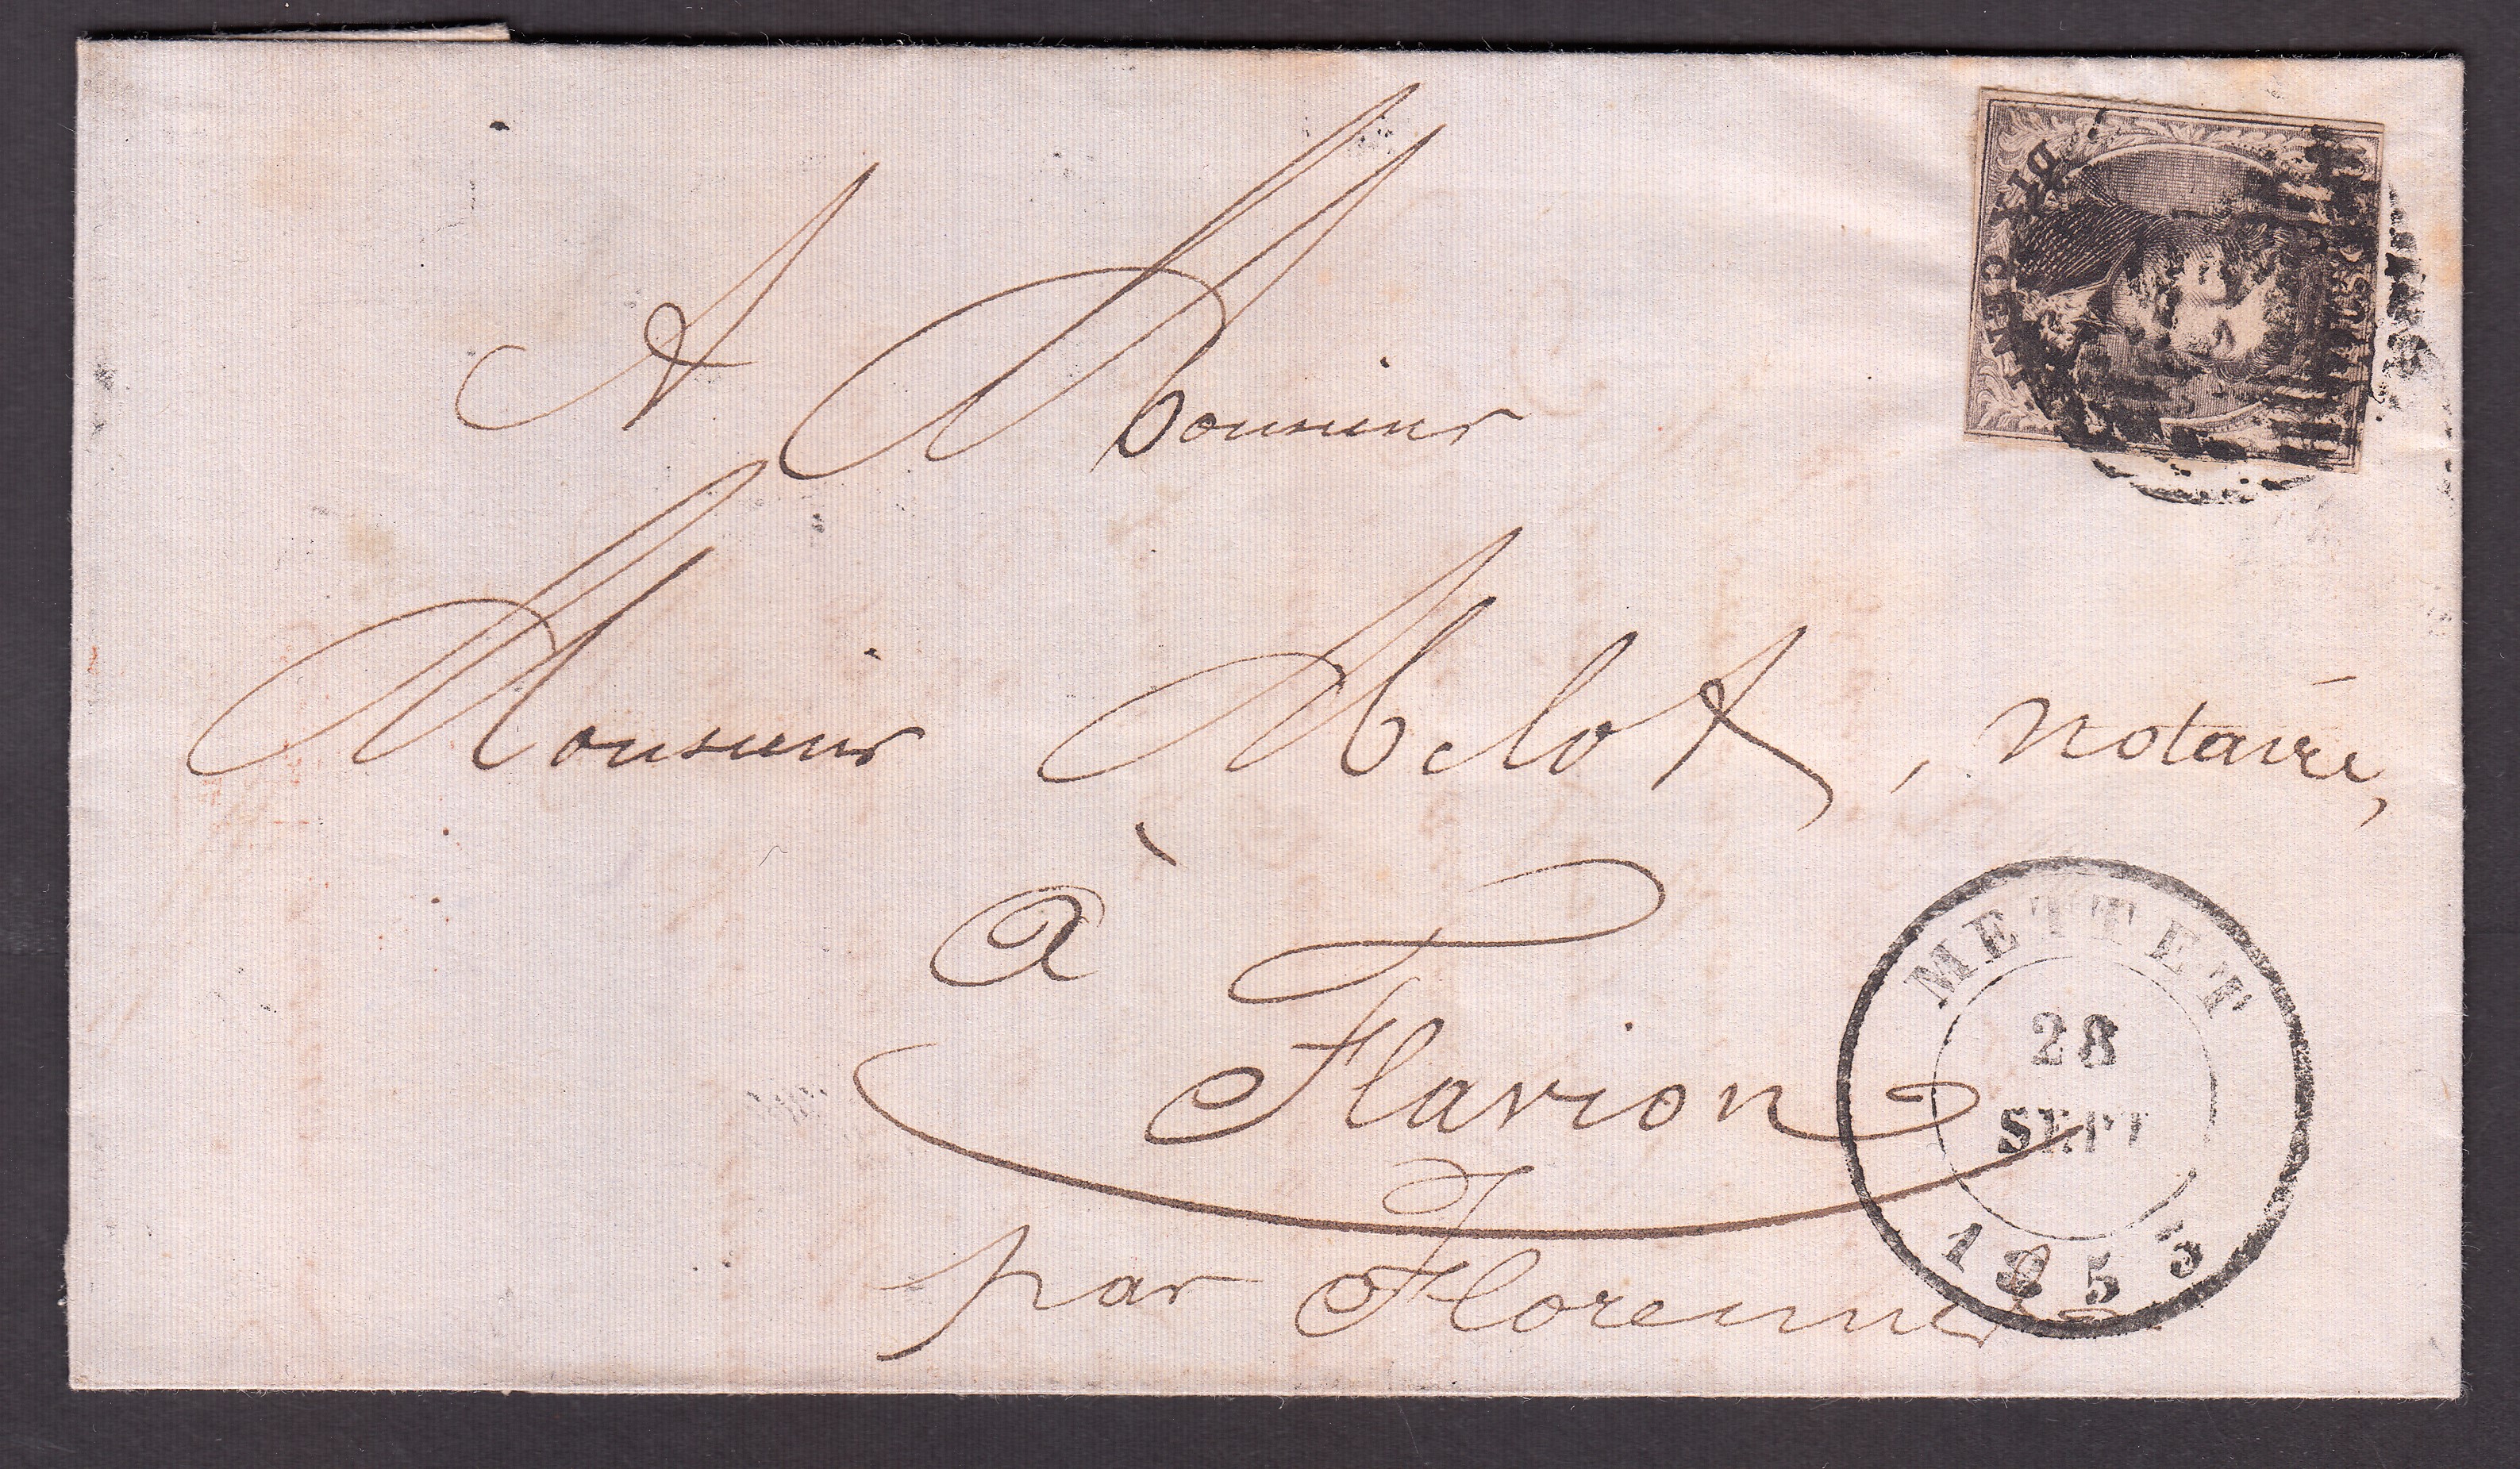 DIX CENT
A Monsieur
Monsieur Melot, notaire,
à
Flavion
par Florennes
METTET
28
SEPT
1853